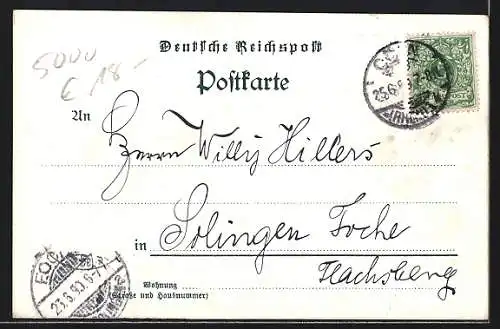 5000
€ 18-
Deutsche Reichspost
Postkarte
An
Herrn Willy Hillers
in Solingen Foche
Flachsberg
Wohnung
(Straße und Hausnummer)